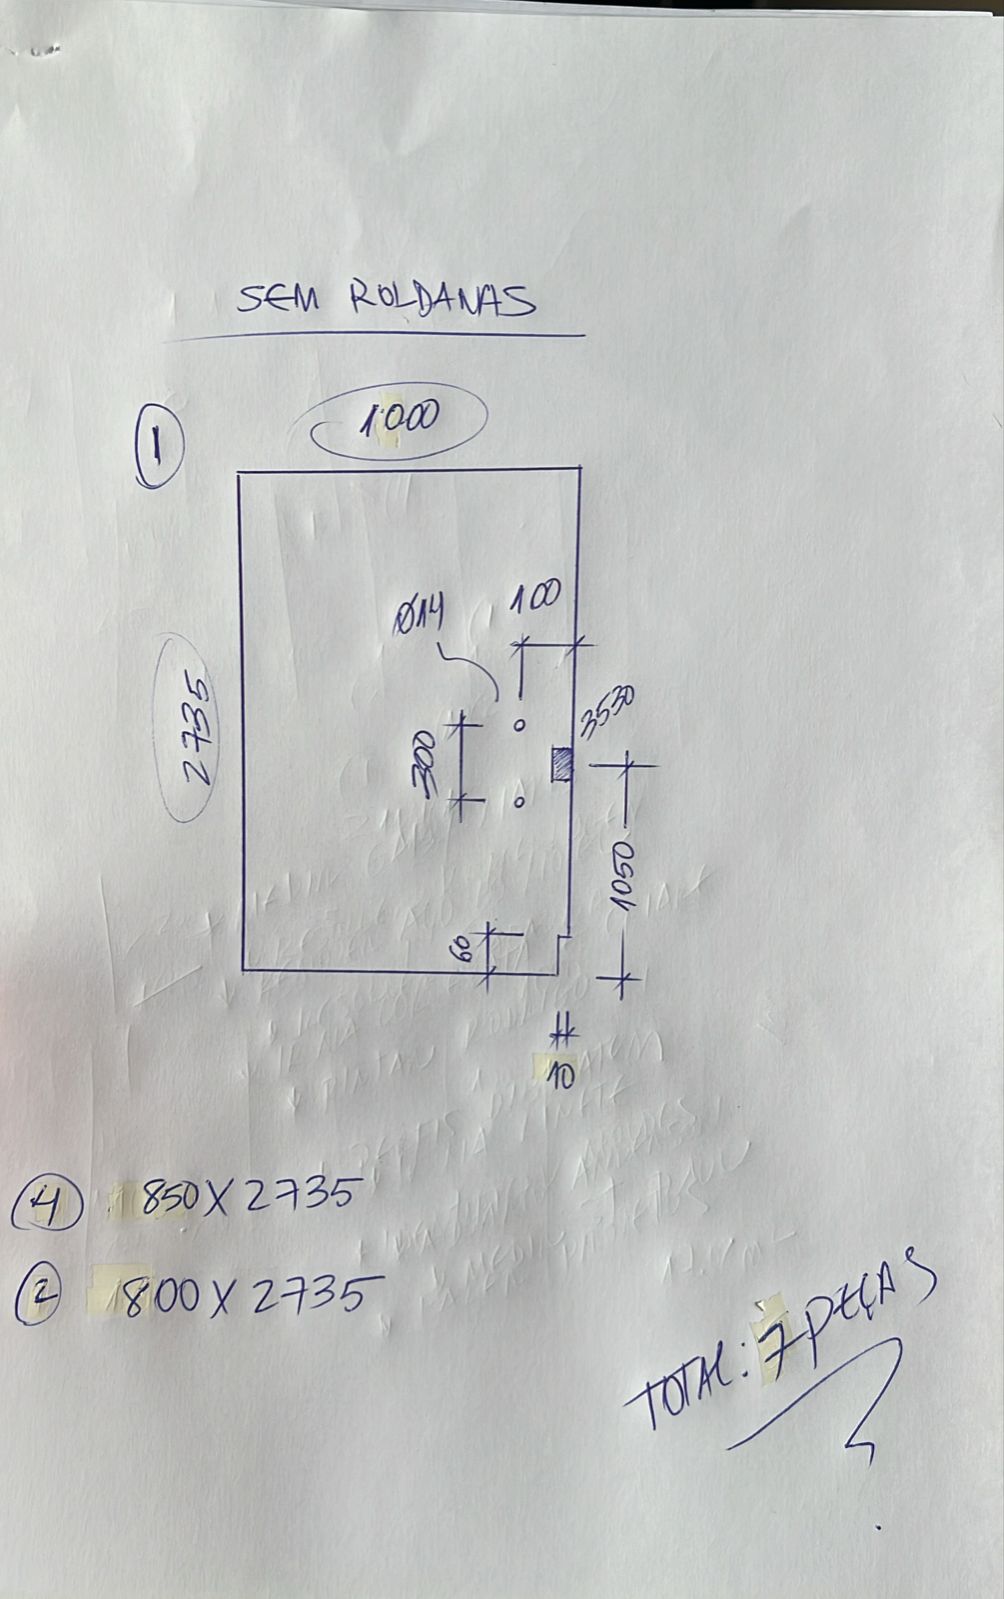 SEM ROLDANAS
1 1000
Ø14 100
2735 300 3530
1050
60
10
4 850 X 2735
2 800 X 2735
TOTAL: 7 PEÇAS